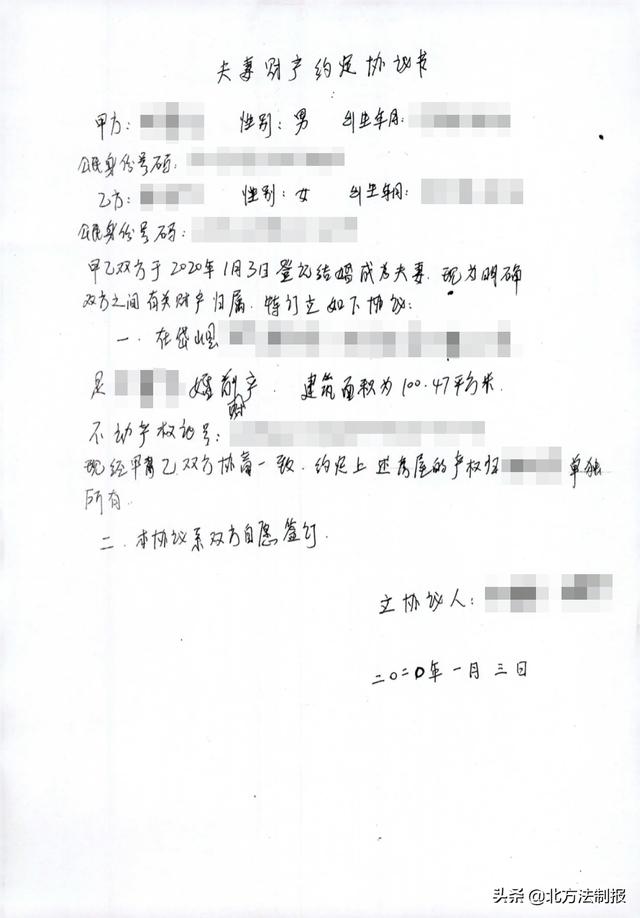 夫妻财产约定协议书
甲方: 性别: 男 出生年月:
公民身份号码:
乙方: 性别: 女 出生年月:
公民身份号码:
甲乙双方于2020年1月3日登记结婚成为夫妻.现为明确
双方之间有关财产归属.特订立如下协议:
一.在岱山县
是 婚前财产. 建筑面积为100.47平方米.
不动产权证号:
现经甲乙双方协商一致.约定上述房屋的产权归 单独
所有.
二.本协议系双方自愿签订.
立协议人:
二〇二〇年一月三日
头条@北方法制报